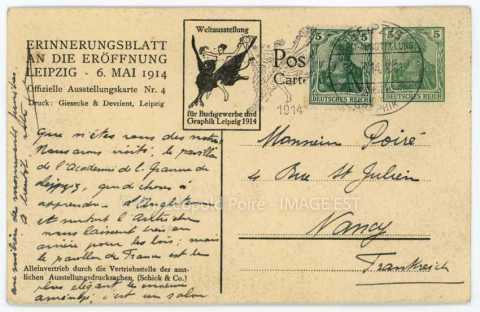 ERINNERUNGSBLATT
AN DIE ERÖFFNUNG
LEIPZIG - 6. MAI 1914
Offizielle Ausstellungskarte Nr. 4
Druck: Giesecke & Devrient, Leipzig
Weltausstellung
für Buchgewerbe und
Graphik Leipzig 1914
Pos
Carte
1914
5 5
DEUTSCHES REICH
5
DEUTSCHES REICH
Que n'êtes vous des nôtres
Nous avons visité le pavillon
de l'Académie de
Leipzig, que de choses à
apprendre. l'Angleterre
et surtout l'Autriche
nous laissent très en
arrière pour les bois; mais
le pavillon de France est le
Alleinvertrieb durch die Vertriebsstelle des amt-
lichen Ausstellungsdrucksachen. (Schick & Co.)
plus élégant
c'est un salon
Monsieur Poiré
4 Rue St Julien
Nancy
Frankreich
Poiré - IMAGE'EST